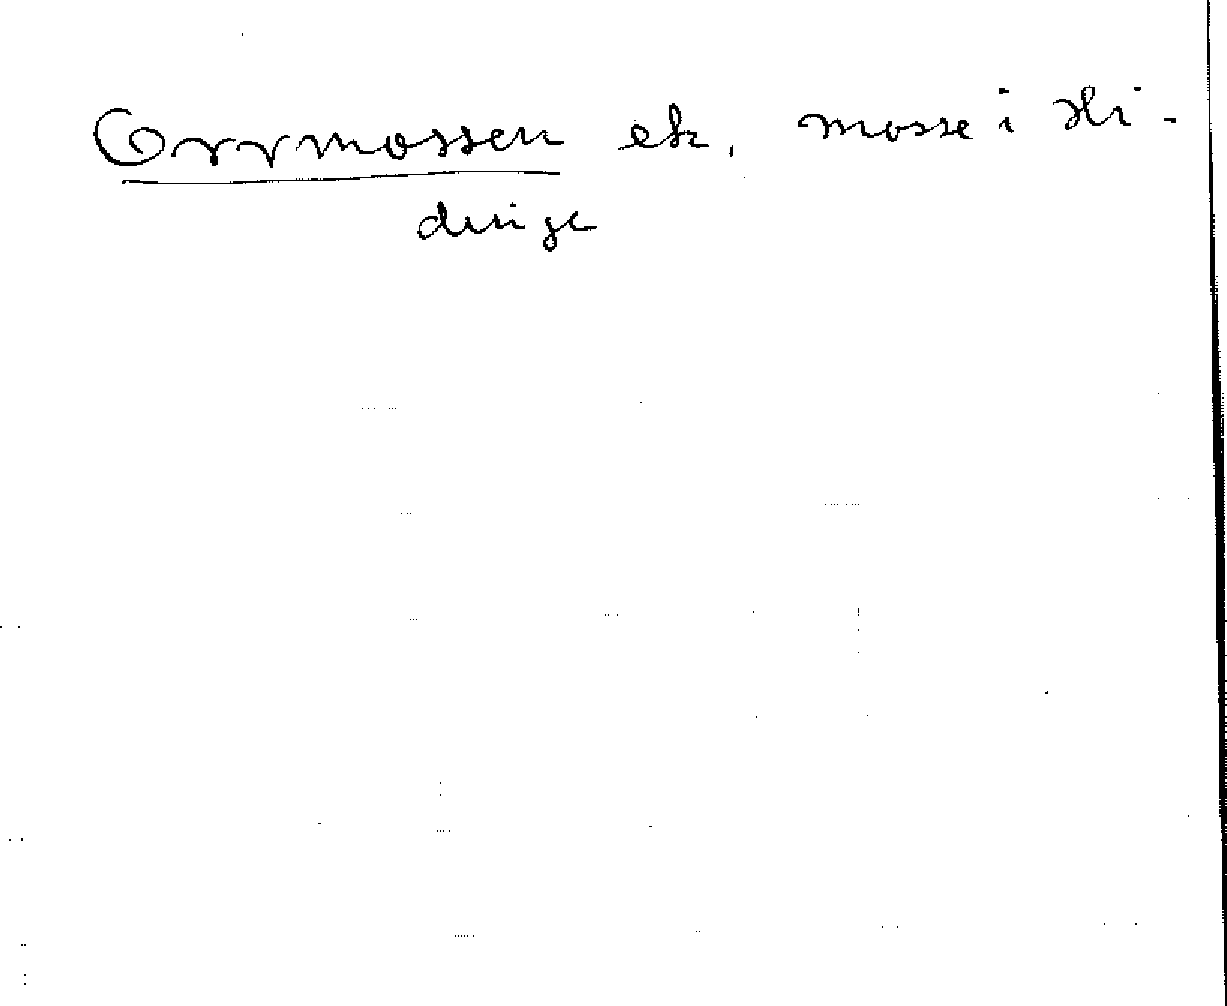 Orrmossen ek. mosse i Hi-
dinge